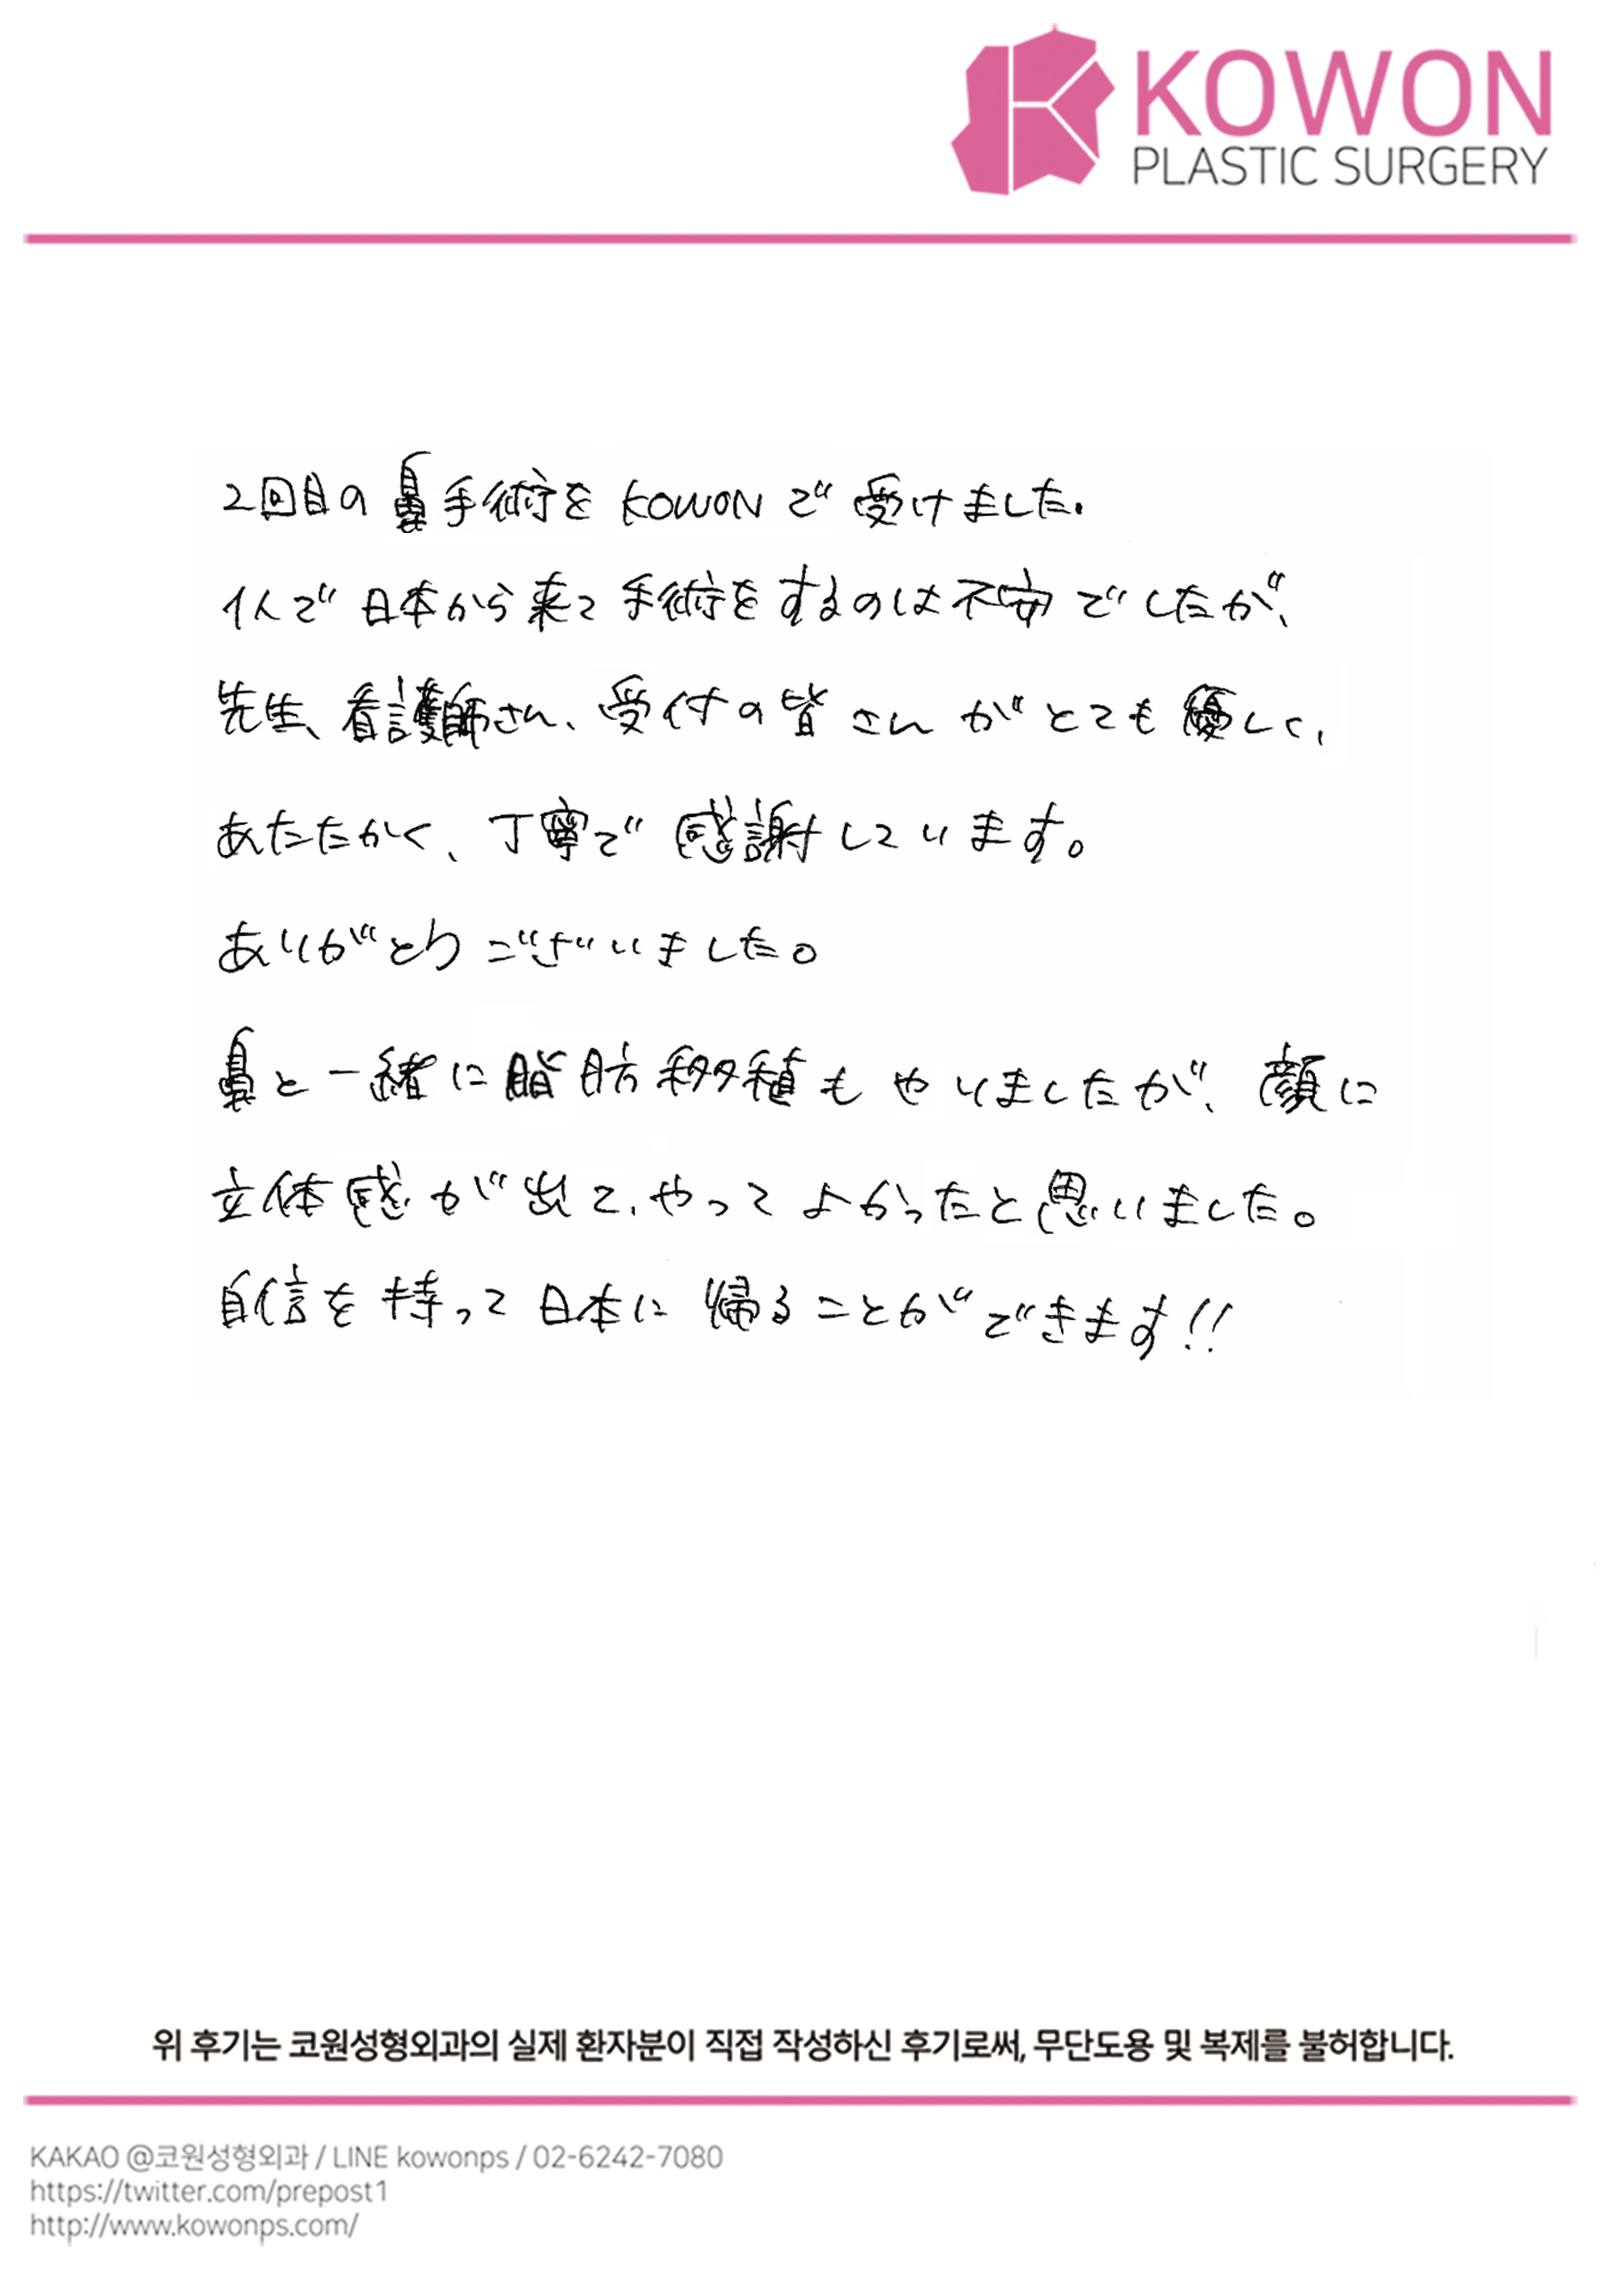 KOWON
PLASTIC SURGERY
2回目の鼻手術をKOWONで受けました.
1人で日本から来て手術をするのは不安でしたが、
先生、看護師さん、受付の皆さんがとても優しく、
あたたかく、丁寧で感謝しています。
ありがとうございました。
鼻と一緒に脂肪移植もやりましたが、顔に
立体感が出て、やってよかったと思いました。
自信を持って日本に帰ることができます!!
위 후기는 코원성형외과의 실제 환자분이 직접 작성하신 후기로써, 무단도용 및 복제를 불허합니다.
KAKAO @코원성형외과 / LINE kowonps / 02-6242-7080
https://twitter.com/prepost1
http://www.kowonps.com/